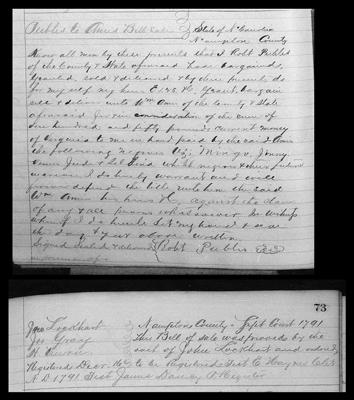 Peebles to Amis Bill Sale State of No Carolina
Noampton County
Know all men by these presents that I Robt Peebles
of the County & State aforesaid have bargained,
granted, sold & delivered & by these presents do
for my self my heirs E A &c Grant, bargain
sell & deliver unto Wm Amis of the County & State
aforesaid for & in consideration of the sum of
one hundred and fifty pounds current money
of Virginia to me in hand paid by the said Amis
the following Negroes Viz; Mingo, Jenny
Amis and which negroes & their future
increase I do hereby warrant and will
forever defend the title unto him the said
Wm Amis his heirs &c against the claim
of any & all persons whatsoever In Witness
whereof I do hereunto Set my hand & seal
the day & year above written
Signed sealed & delivered Robt Peebles
in presence of
73
Jno Lockhart Noampton County - Sept Court 1791
Jos Gray This Bill of sale was proved by the
H oath of John Lockhart and ordered
Registered Decr 16th to be registered Test E Haynes Clk
A D 1791 Test James Register